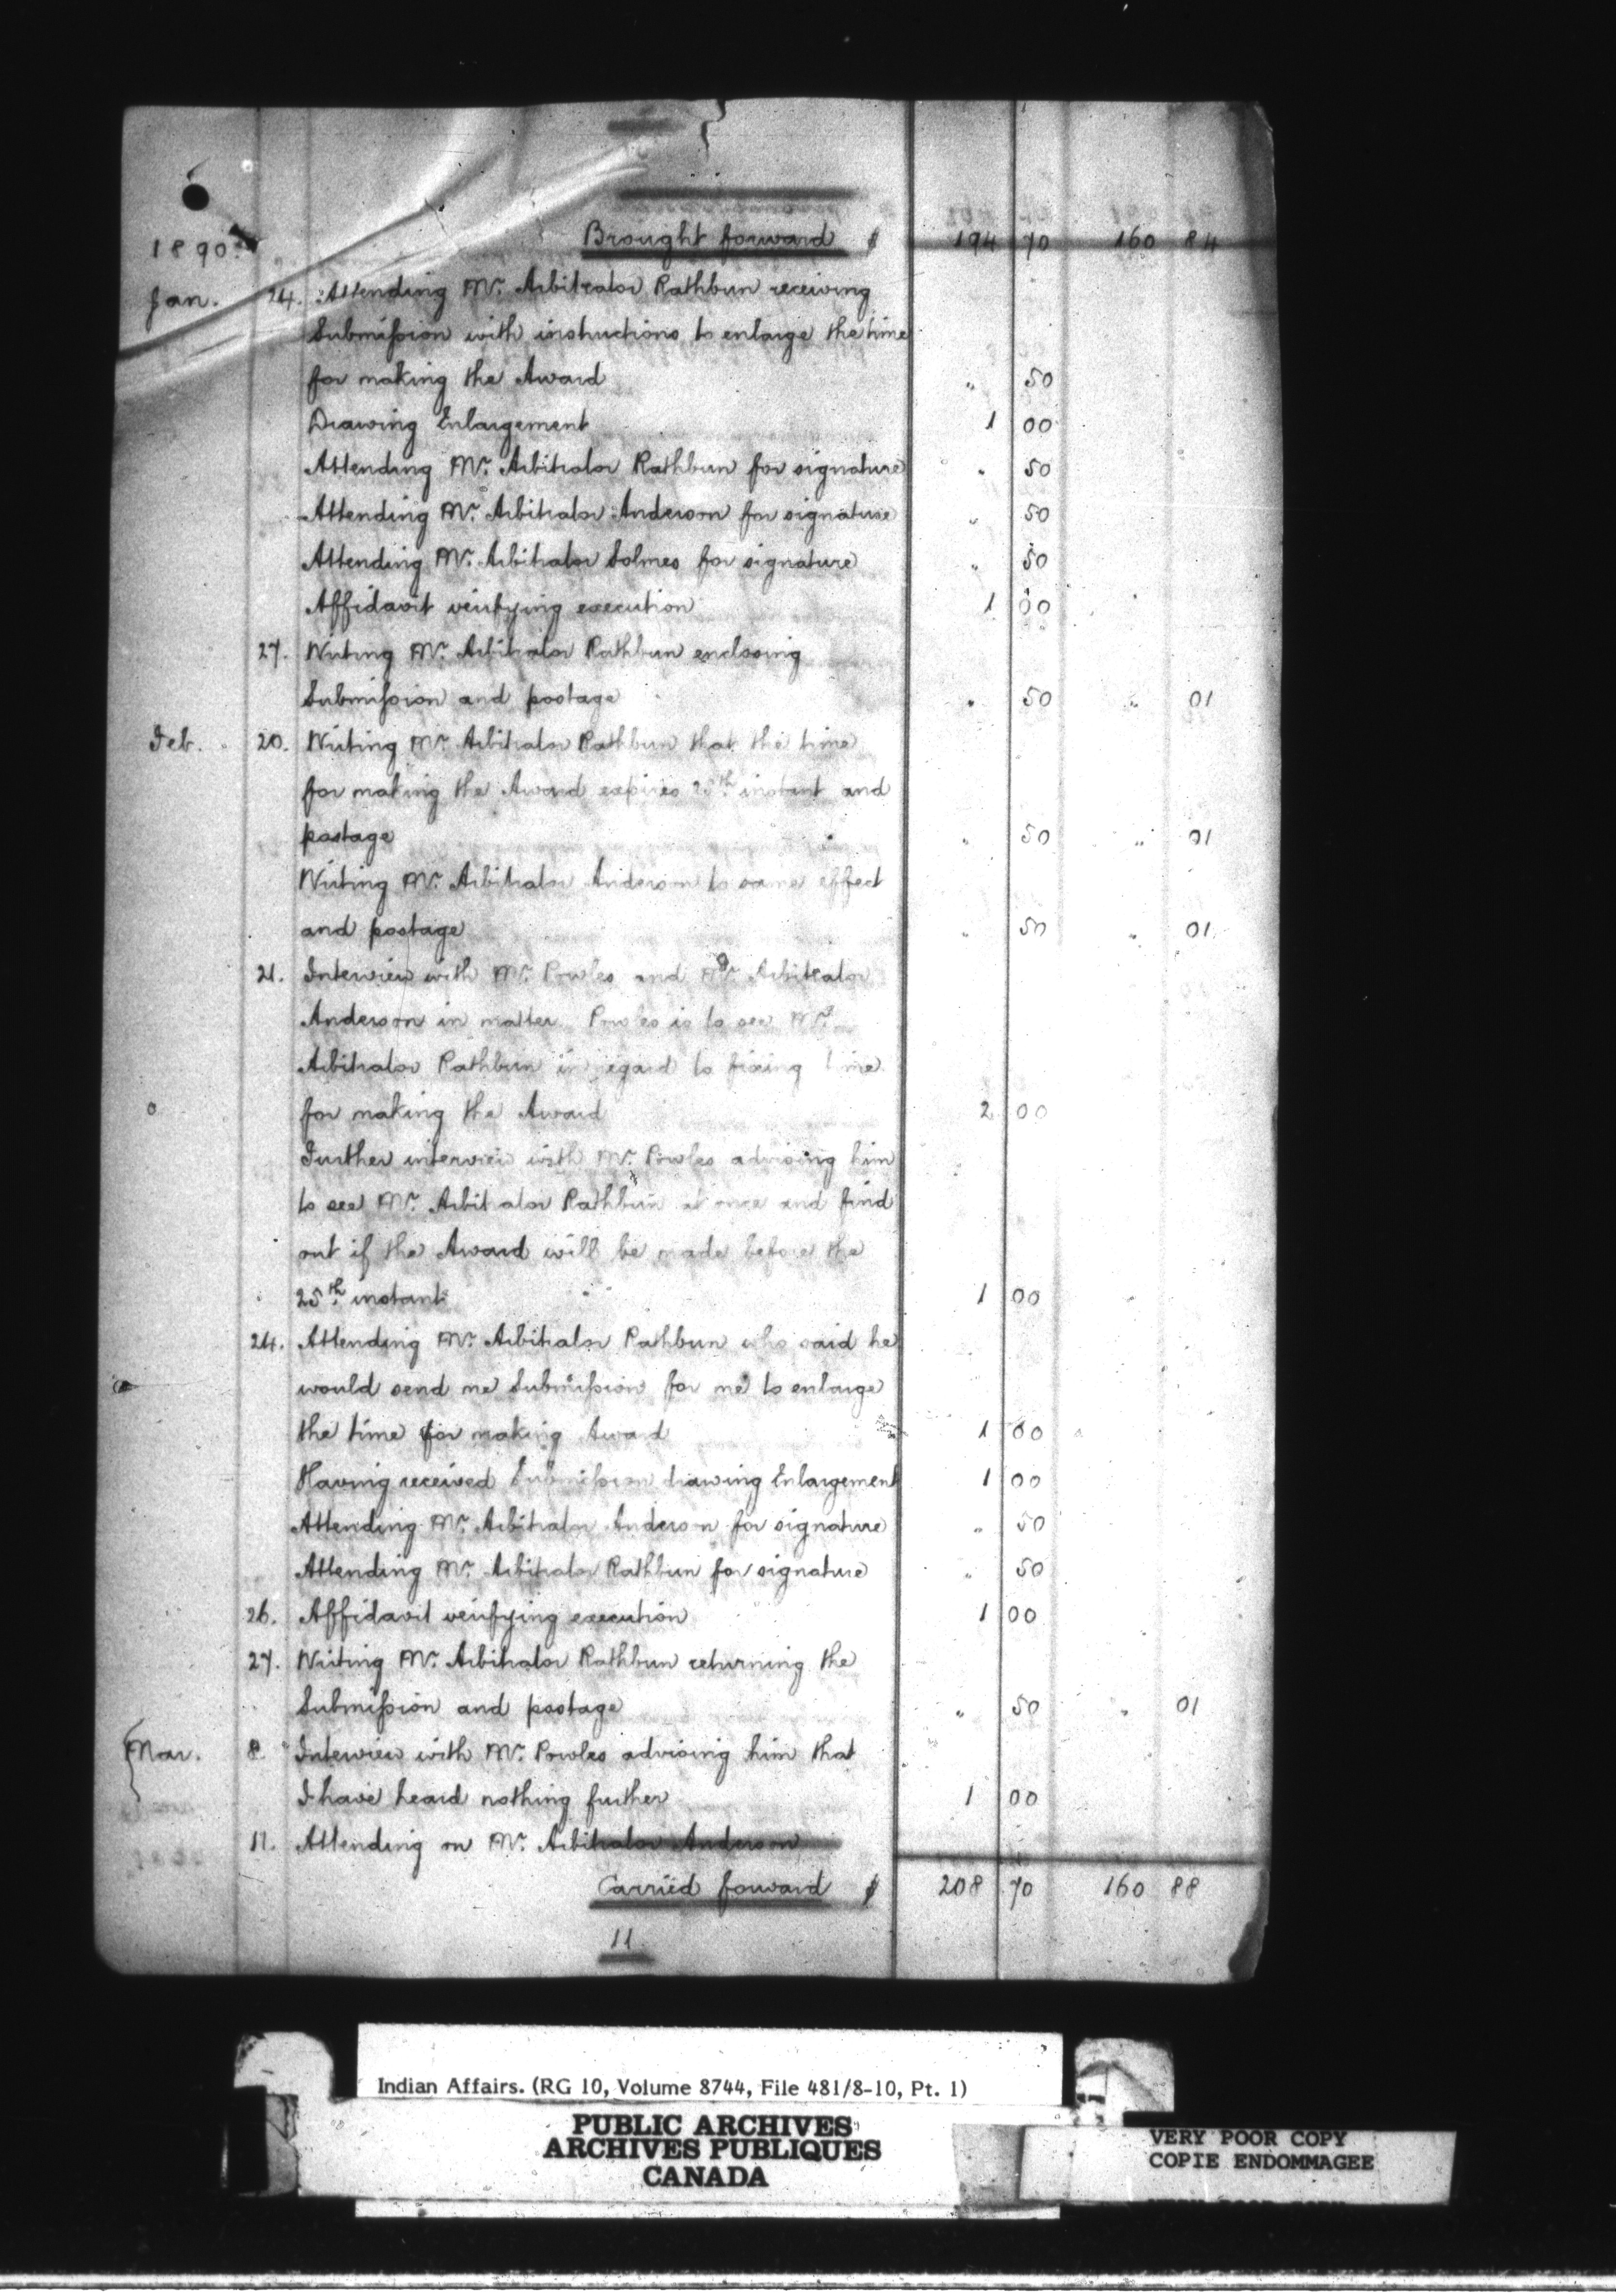 Brought forward $ 194 70 160 84
1890.
Jan. 24. Attending Mr. Arbitrator Rathbun receiving
Submission with instructions to enlarge the time
for making the Award " 50
Drawing Enlargement 1 00
Attending Mr. Arbitrator Rathbun for signature " 50
Attending Mr. Arbitrator Anderson for signature " 50
Attending Mr. Arbitrator Solmes for signature " 50
Affidavit verifying execution 1 00
27. Writing Mr. Arbitrator Rathbun enclosing
Submission and postage " 50 " 01
Feb. 20. Writing Mr. Arbitrator Rathbun that the time
for making the Award expires 25th instant and
postage " 50 " 01
Writing Mr. Arbitrator Anderson to same effect
and postage " 50 " 01
21. Interview with Mr. Powles and Mr. Arbitrator
Anderson in matter Powles is to see Mr.
Arbitrator Rathbun in regard to fixing time
for making the Award 2 00
Further interview with Mr. Powles advising him
to see Mr. Arbitrator Rathbun at once and find
out if the Award will be made before the
25th instant 1 00
24. Attending Mr. Arbitrator Rathbun who said he
would send me Submission for me to enlarge
the time for making Award 1 00
Having received Submission drawing Enlargement 1 00
Attending Mr. Arbitrator Anderson for signature " 50
Attending Mr. Arbitrator Rathbun for signature " 50
26. Affidavit verifying execution 1 00
27. Writing Mr. Arbitrator Rathbun returning the
Submission and postage " 50 " 01
Mar. 8. Interview with Mr. Powles advising him that
I have heard nothing further 1 00
11. Attending on Mr. Arbitrator Anderson
Carried forward $ 208 70 160 88
11
Indian Affairs. (RG 10, Volume 8744, File 481/8-10, Pt. 1)
PUBLIC ARCHIVES
ARCHIVES PUBLIQUES
CANADA
VERY POOR COPY
COPIE ENDOMMAGEE